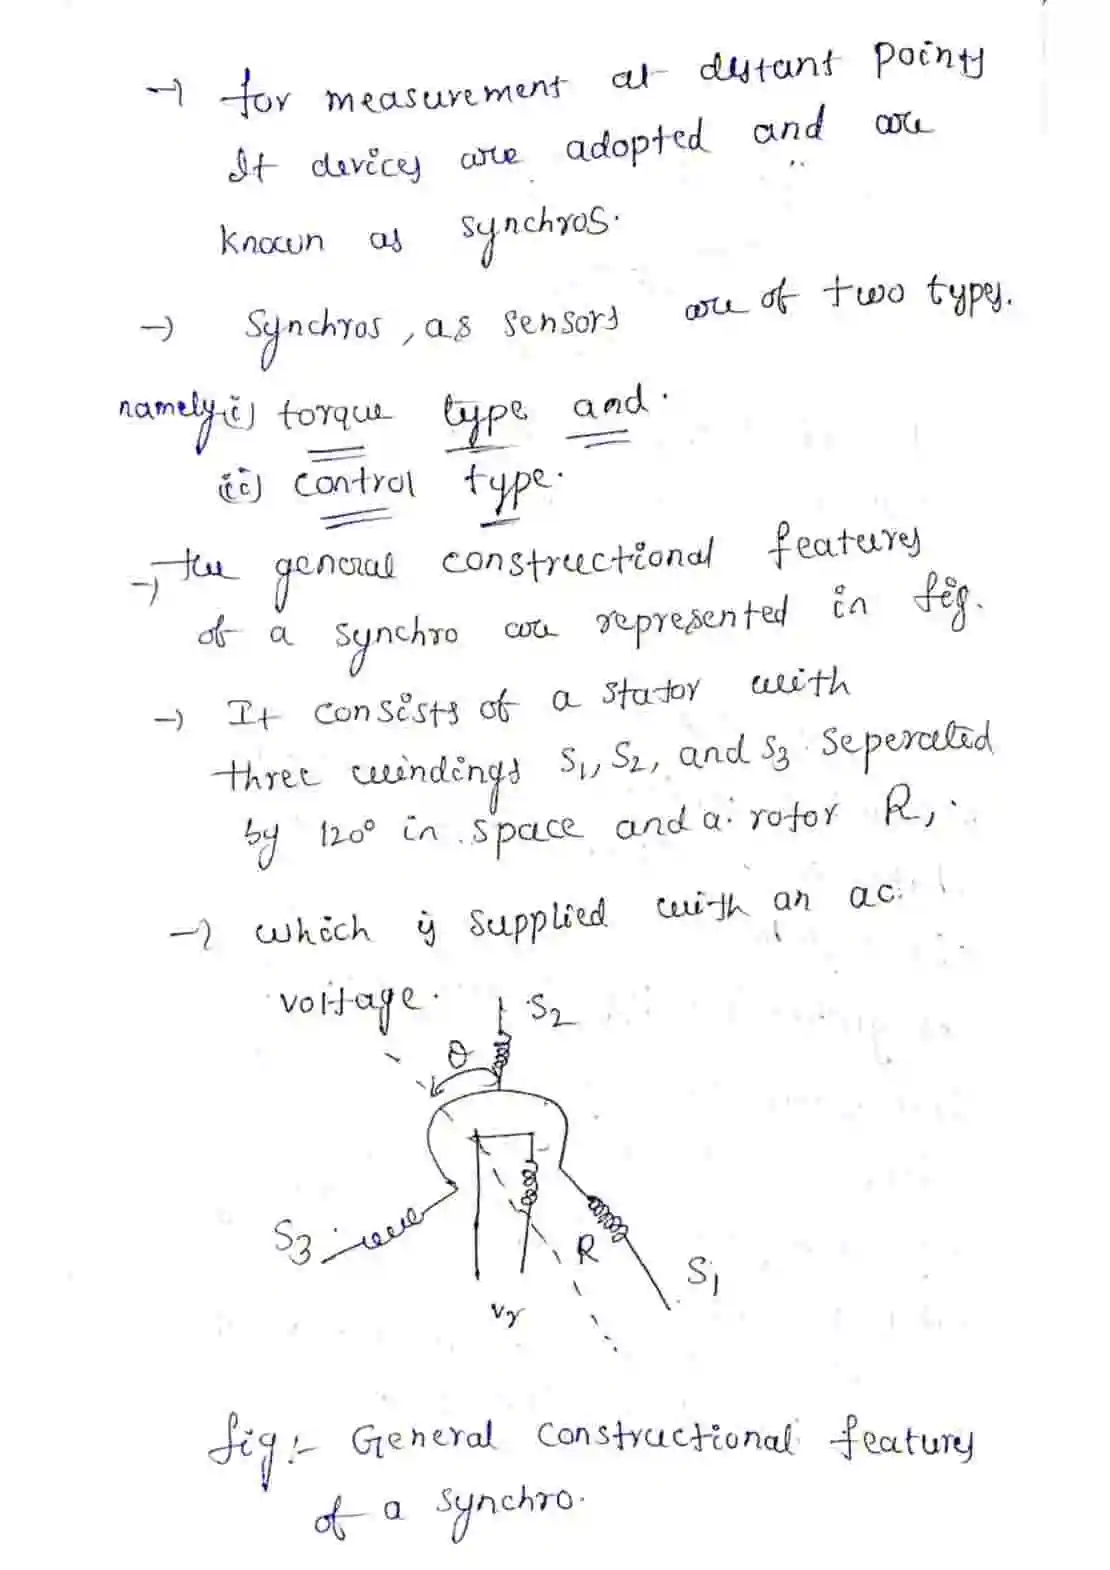 → for measurement at distant points
It devices are adopted and are
known as synchros.
→ Synchros, as sensors are of two types.
namely i) torque type and.
ii) control type.
→ the general constructional features
of a synchro are represented in fig.
→ It consists of a stator with
three windings S1, S2, and S3 seperated
by 120° in space and a rotor R,
→ which is supplied with an ac.
voltage.
S2
θ
S3
R
S1
Vr
fig:- General constructional features
of a synchro.